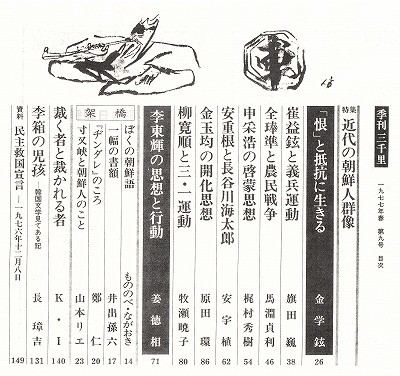 季刊三千里 一九七七年春 第九号 目次
特集 近代の朝鮮人群像
「恨」と抵抗に生きる 金学鉉 26
崔益鉉と義兵運動 旗田巍 38
全琫準と農民戦争 馬淵貞利 46
申采浩の啓蒙思想 梶村秀樹 54
安重根と長谷川海太郎 安宇植 62
金玉均の開化思想 原田環 86
柳寛順と三・一運動 牧瀬暁子 80
李東輝の思想と行動 姜徳相 71
架橋
ぼくの朝鮮語 もののべ・ながおき 14
一幅の書額 井出孫六 17
『ヂンダレ』のころ 鄭仁 20
寸又峡と朝鮮人のこと 山本リエ 23
裁く者と裁かれる者 K・I 140
李箱の児孩 韓国文学見てある記 長璋吉 131
資料 民主救国宣言 ―一九七六年十二月八日 149